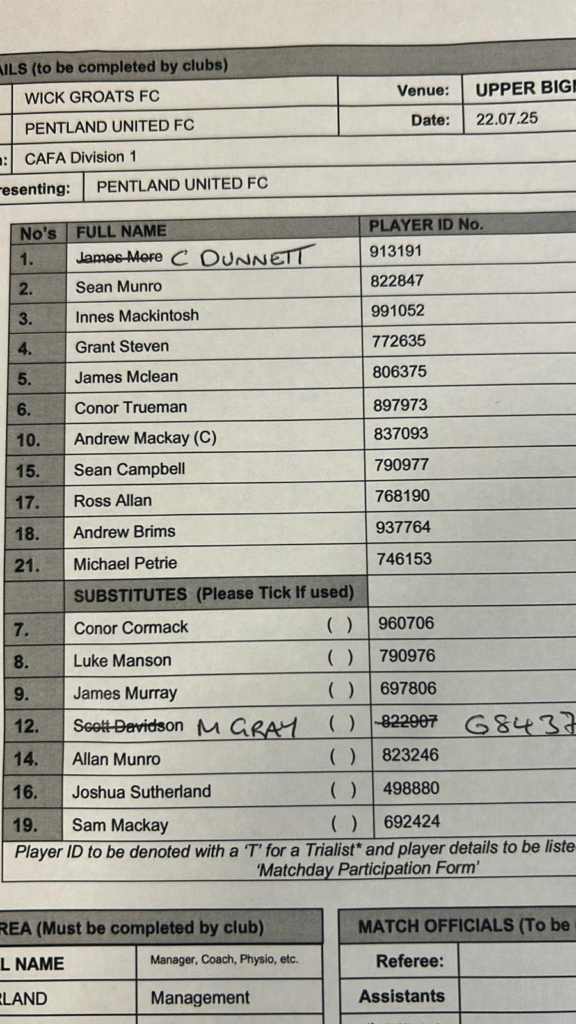 AILS (to be completed by clubs)
WICK GROATS FC Venue: UPPER BIG
PENTLAND UNITED FC Date: 22.07.25
: CAFA Division 1
resenting: PENTLAND UNITED FC
No's FULL NAME PLAYER ID No.
1. James More C DUNNETT 913191
2. Sean Munro 822847
3. Innes Mackintosh 991052
4. Grant Steven 772635
5. James Mclean 806375
6. Conor Trueman 897973
10. Andrew Mackay (C) 837093
15. Sean Campbell 790977
17. Ross Allan 768190
18. Andrew Brims 937764
21. Michael Petrie 746153
SUBSTITUTES (Please Tick If used)
7. Conor Cormack ( ) 960706
8. Luke Manson ( ) 790976
9. James Murray ( ) 697806
12. Scott Davidson M GRAY ( ) 822907 G8437
14. Allan Munro ( ) 823246
16. Joshua Sutherland ( ) 498880
19. Sam Mackay ( ) 692424
Player ID to be denoted with a 'T' for a Trialist* and player details to be liste
'Matchday Participation Form'
REA (Must be completed by club) MATCH OFFICIALS (To be
L NAME Manager, Coach, Physio, etc. Referee:
RLAND Management Assistants